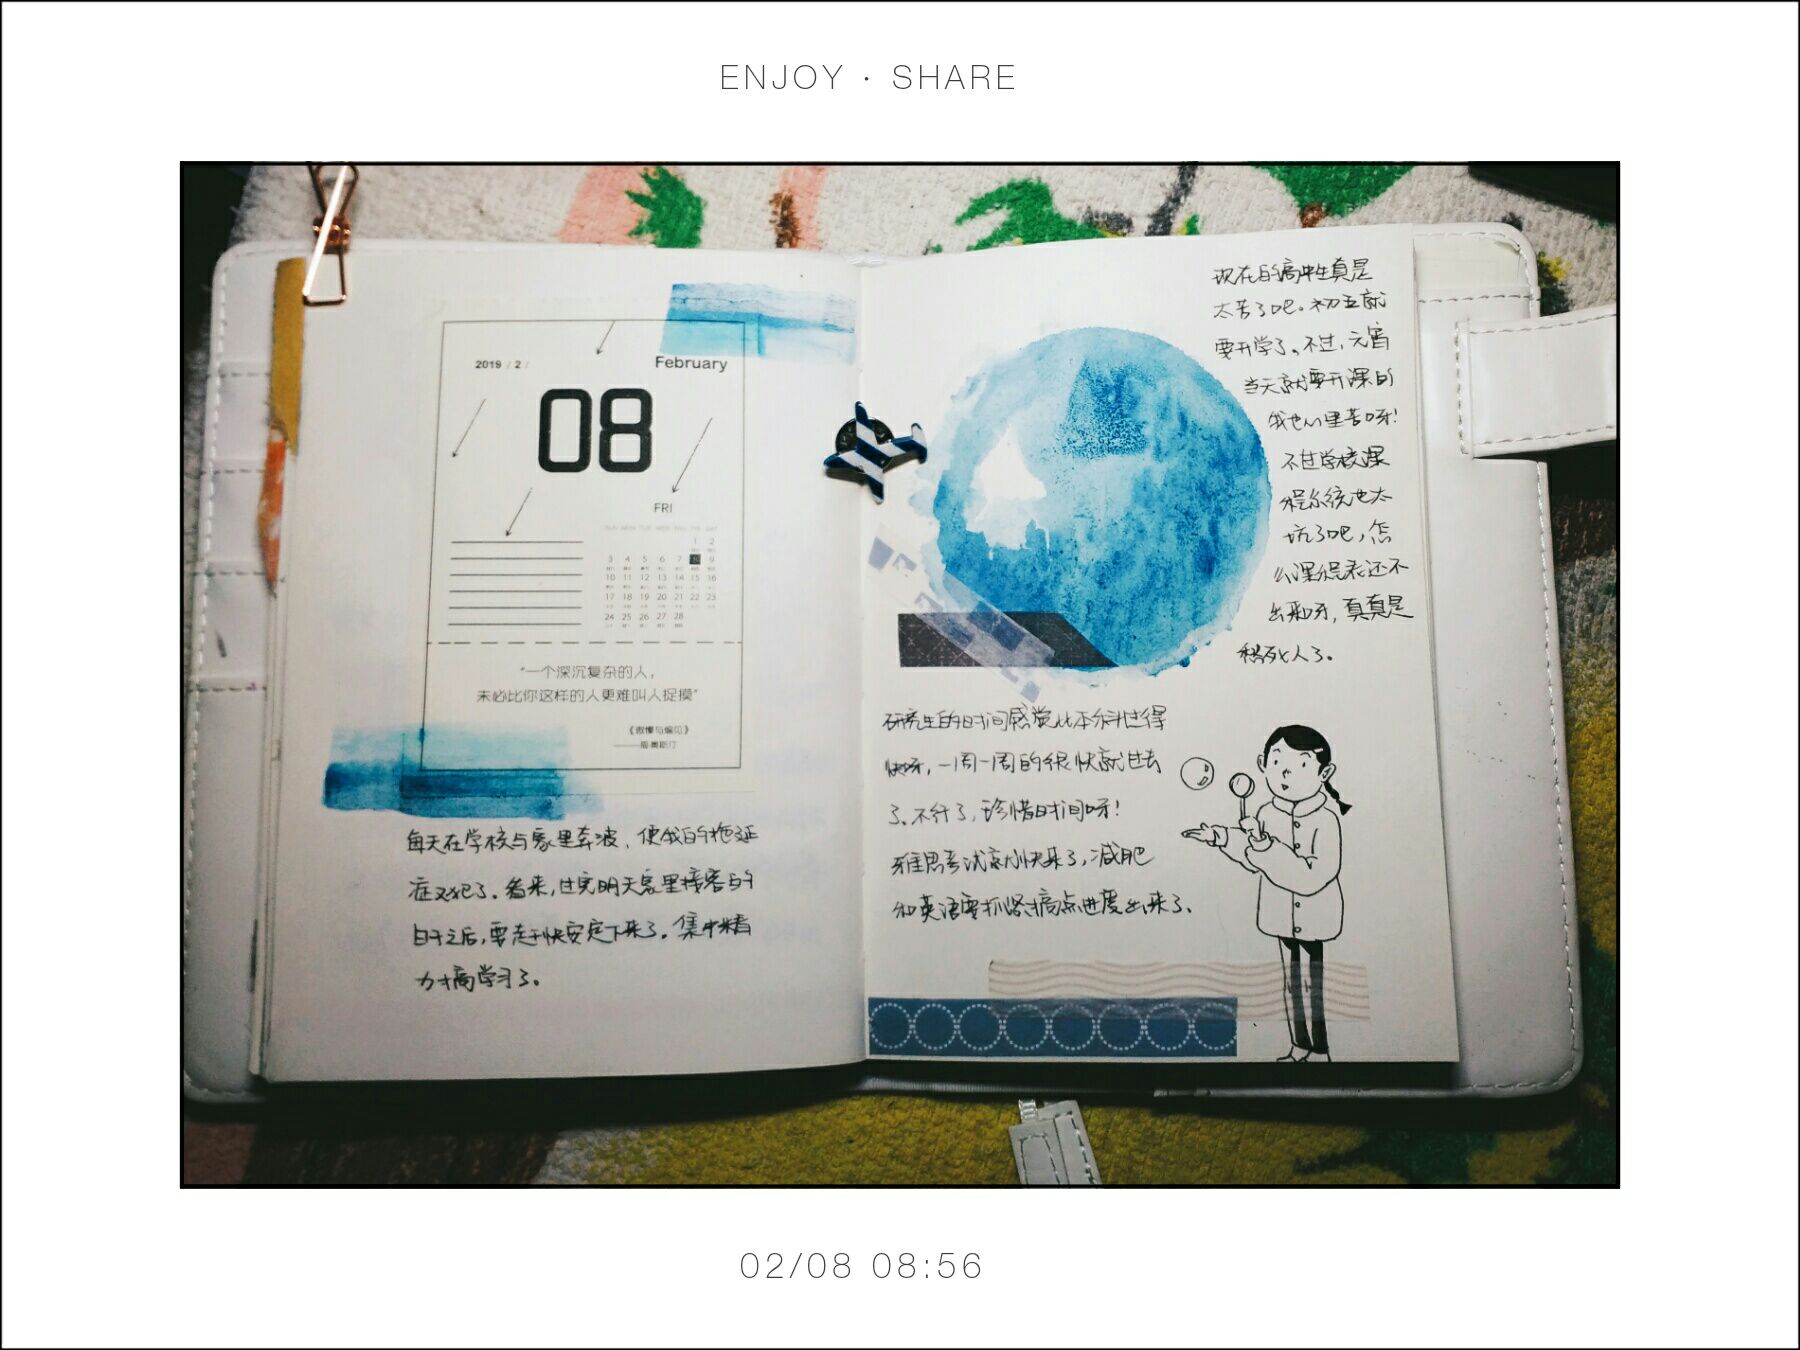 ENJOY · SHARE
2019 / 2 /
February
08
FRI
SUN MON TUE WED THU FRI SAT
1 2
3 4 5 6 7 8 9
10 11 12 13 14 15 16
17 18 19 20 21 22 23
24 25 26 27 28
“一个深沉复杂的人，
未必比你这样的人更难叫人捉摸”
《傲慢与偏见》
——简·奥斯汀
每天在学校与家里奔波，使我的拖延
症又犯了。看来，过完明天家里接客的
日子之后，要赶快安定下来了。集中精
力搞学习了。
现在的高中生真是
太苦了吧。初五就
要开学了。不过，元宵
当天就要开课的
我也心里苦呀！
不过学校课
程系统也太
坑了吧，怎
么课程表还不
出来呀，真真是
愁死人了。
研究生的时间感觉比本科过得
快呀，一周一周的很快就过去
了。不行了，珍惜时间呀！
雅思考试就快来了，减肥
和英语要抓紧搞点进度出来了。
02/08 08:56